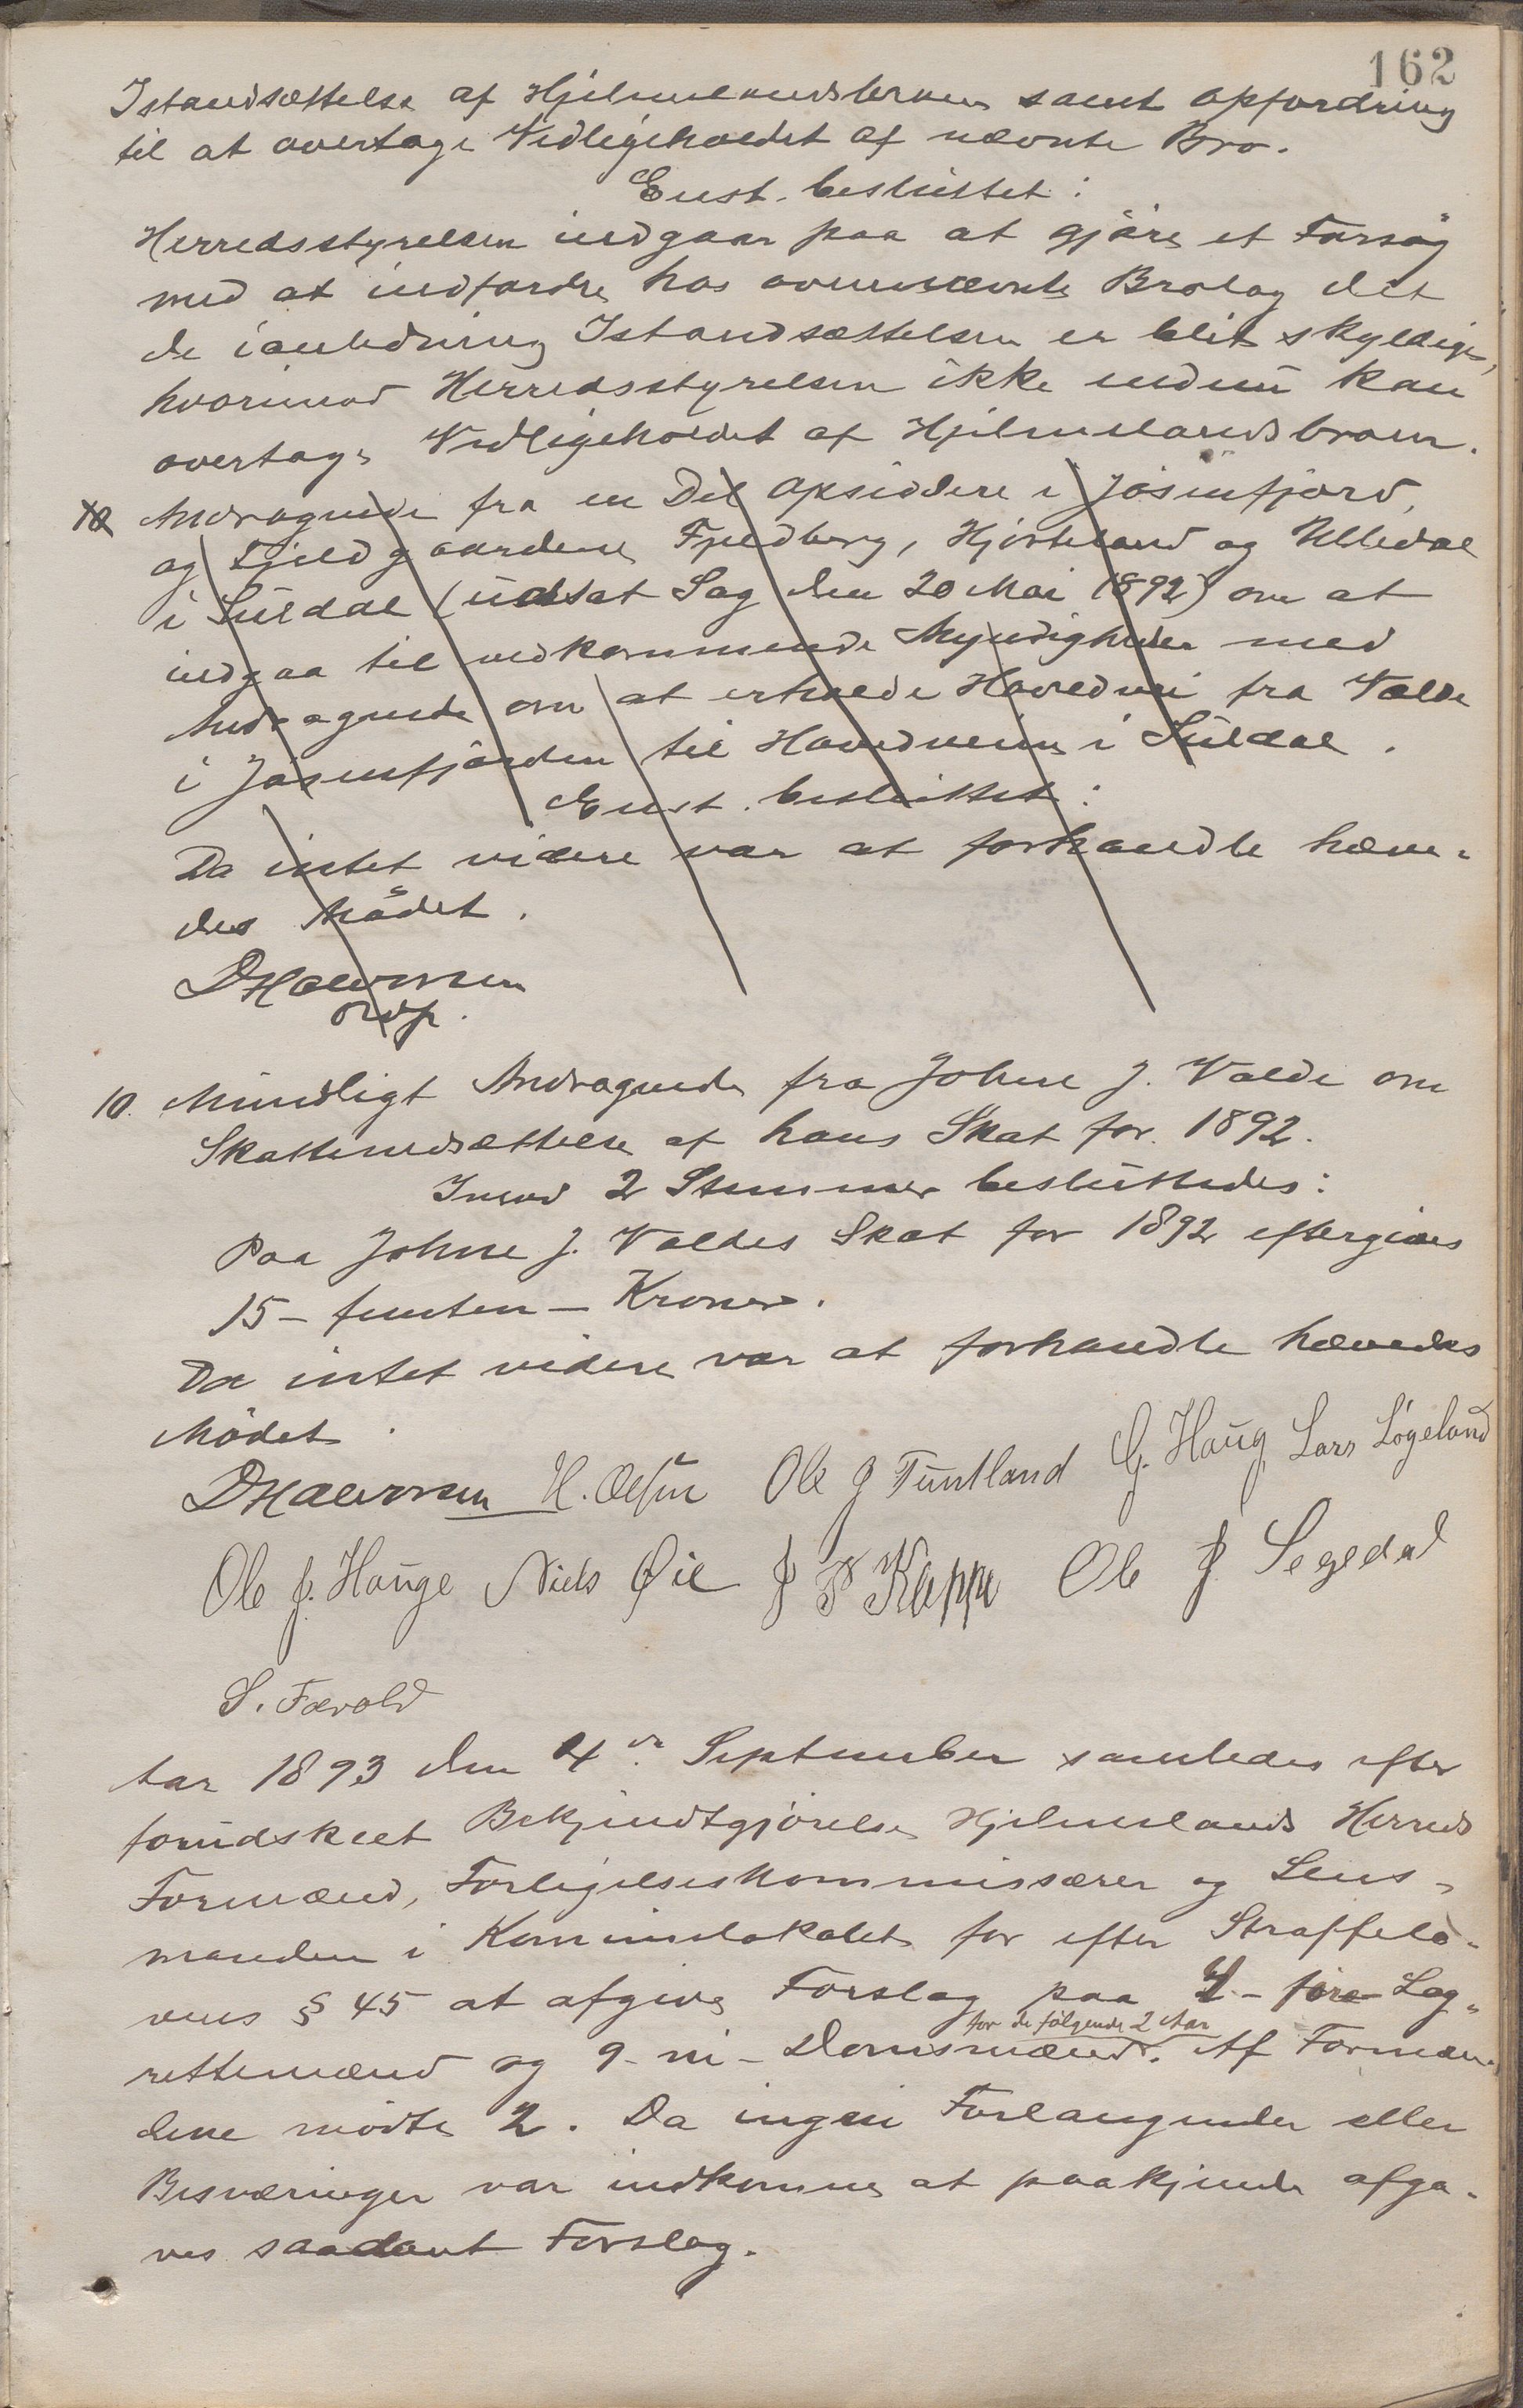 162
Istandsættelse af Hjelmelandsbroen samt Opfordring
til at overtage Vedligeholdet af nævnte Bro.
Enst. besluttet:
Herredsstyrelsen indgaar paa at gjøre et Forsøg
med at indfordre hos ovennævnte Brolag det
de i anledning Istandsættelsen er blit skyldige,
hvorimod Herredsstyrelsen ikke endnu kan
overtage Vedligeholdet af Hjelmelandsbroen.
10 Andragende fra en Del Opsiddere i Jøsenfjord,
og Fjeldgaardene Fjeldberg, Hjorteland og Ulledal
i Suldal (udsat Sag den 20 Mai 1892) om at
indgaa til vedkommende Myndigheder med
Andragende om at erholde Hovedvei fra Valde
i Jøsenfjorden til Hovedveien i Suldal.
Enst. besluttet:
Da intet videre var at forhandle hæve-
des Mødet.
D Halvorsen
Ordf.
10. Mundligt Andragende fra Johne J. Valde om
Skattenedsættelse af hans Skat for 1892.
Imod 2 Stemmer besluttedes:
Paa Johne J. Valdes Skat for 1892 eftergives
15 - femten - Kroner.
Da intet videre var at forhandle hævedes
Mødet.
D Halvorsen H. Ølsen Ole J Tuntland G. Haug Lars Løgeland
Ole J. Hauge Niels Øie J P Kleppe Ole J Segedal
S. Førold
Aar 1893 den 4de September samledes efter
forudskeet Bekjendtgjørelse Hjelmelands Herreds
Formænd, Forligelseskommissærer og Lens-
manden i Kommunelokalet for efter Straffelo-
vens § 45 at afgive Forslag paa 4 - fire - Lag-
rettemænd og 9 - ni - Domsmænd. Af Formæn-
for de følgende 2 Aar
dene mødte 2. Da ingen Forlangender eller
Besværinger var indkomne at paakjende afga-
ves saadant Forslag.